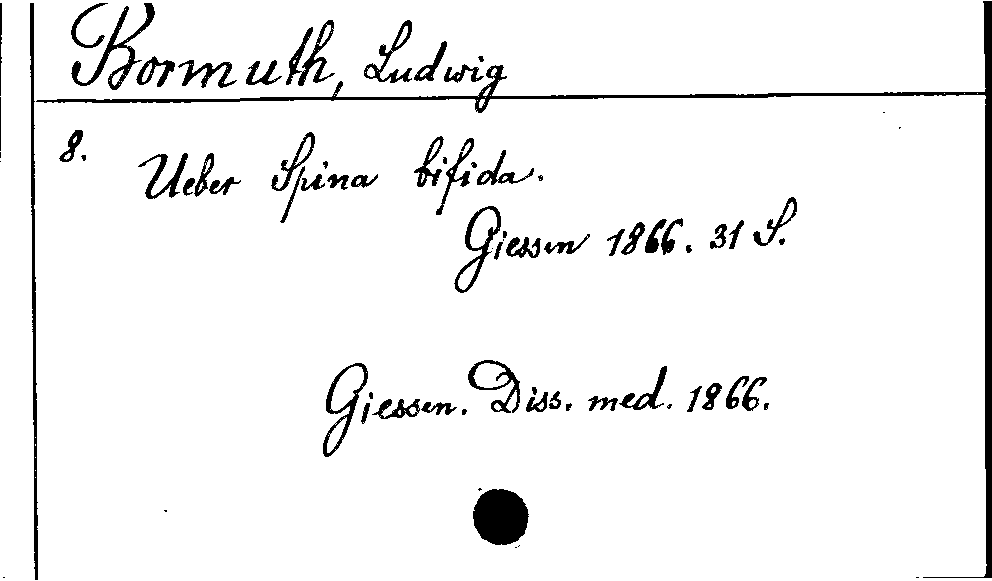 Bormuth, Ludwig
8. Ueber Spina bifida.
Giessen 1866. 31 S.
Giessen. Diss. med. 1866.